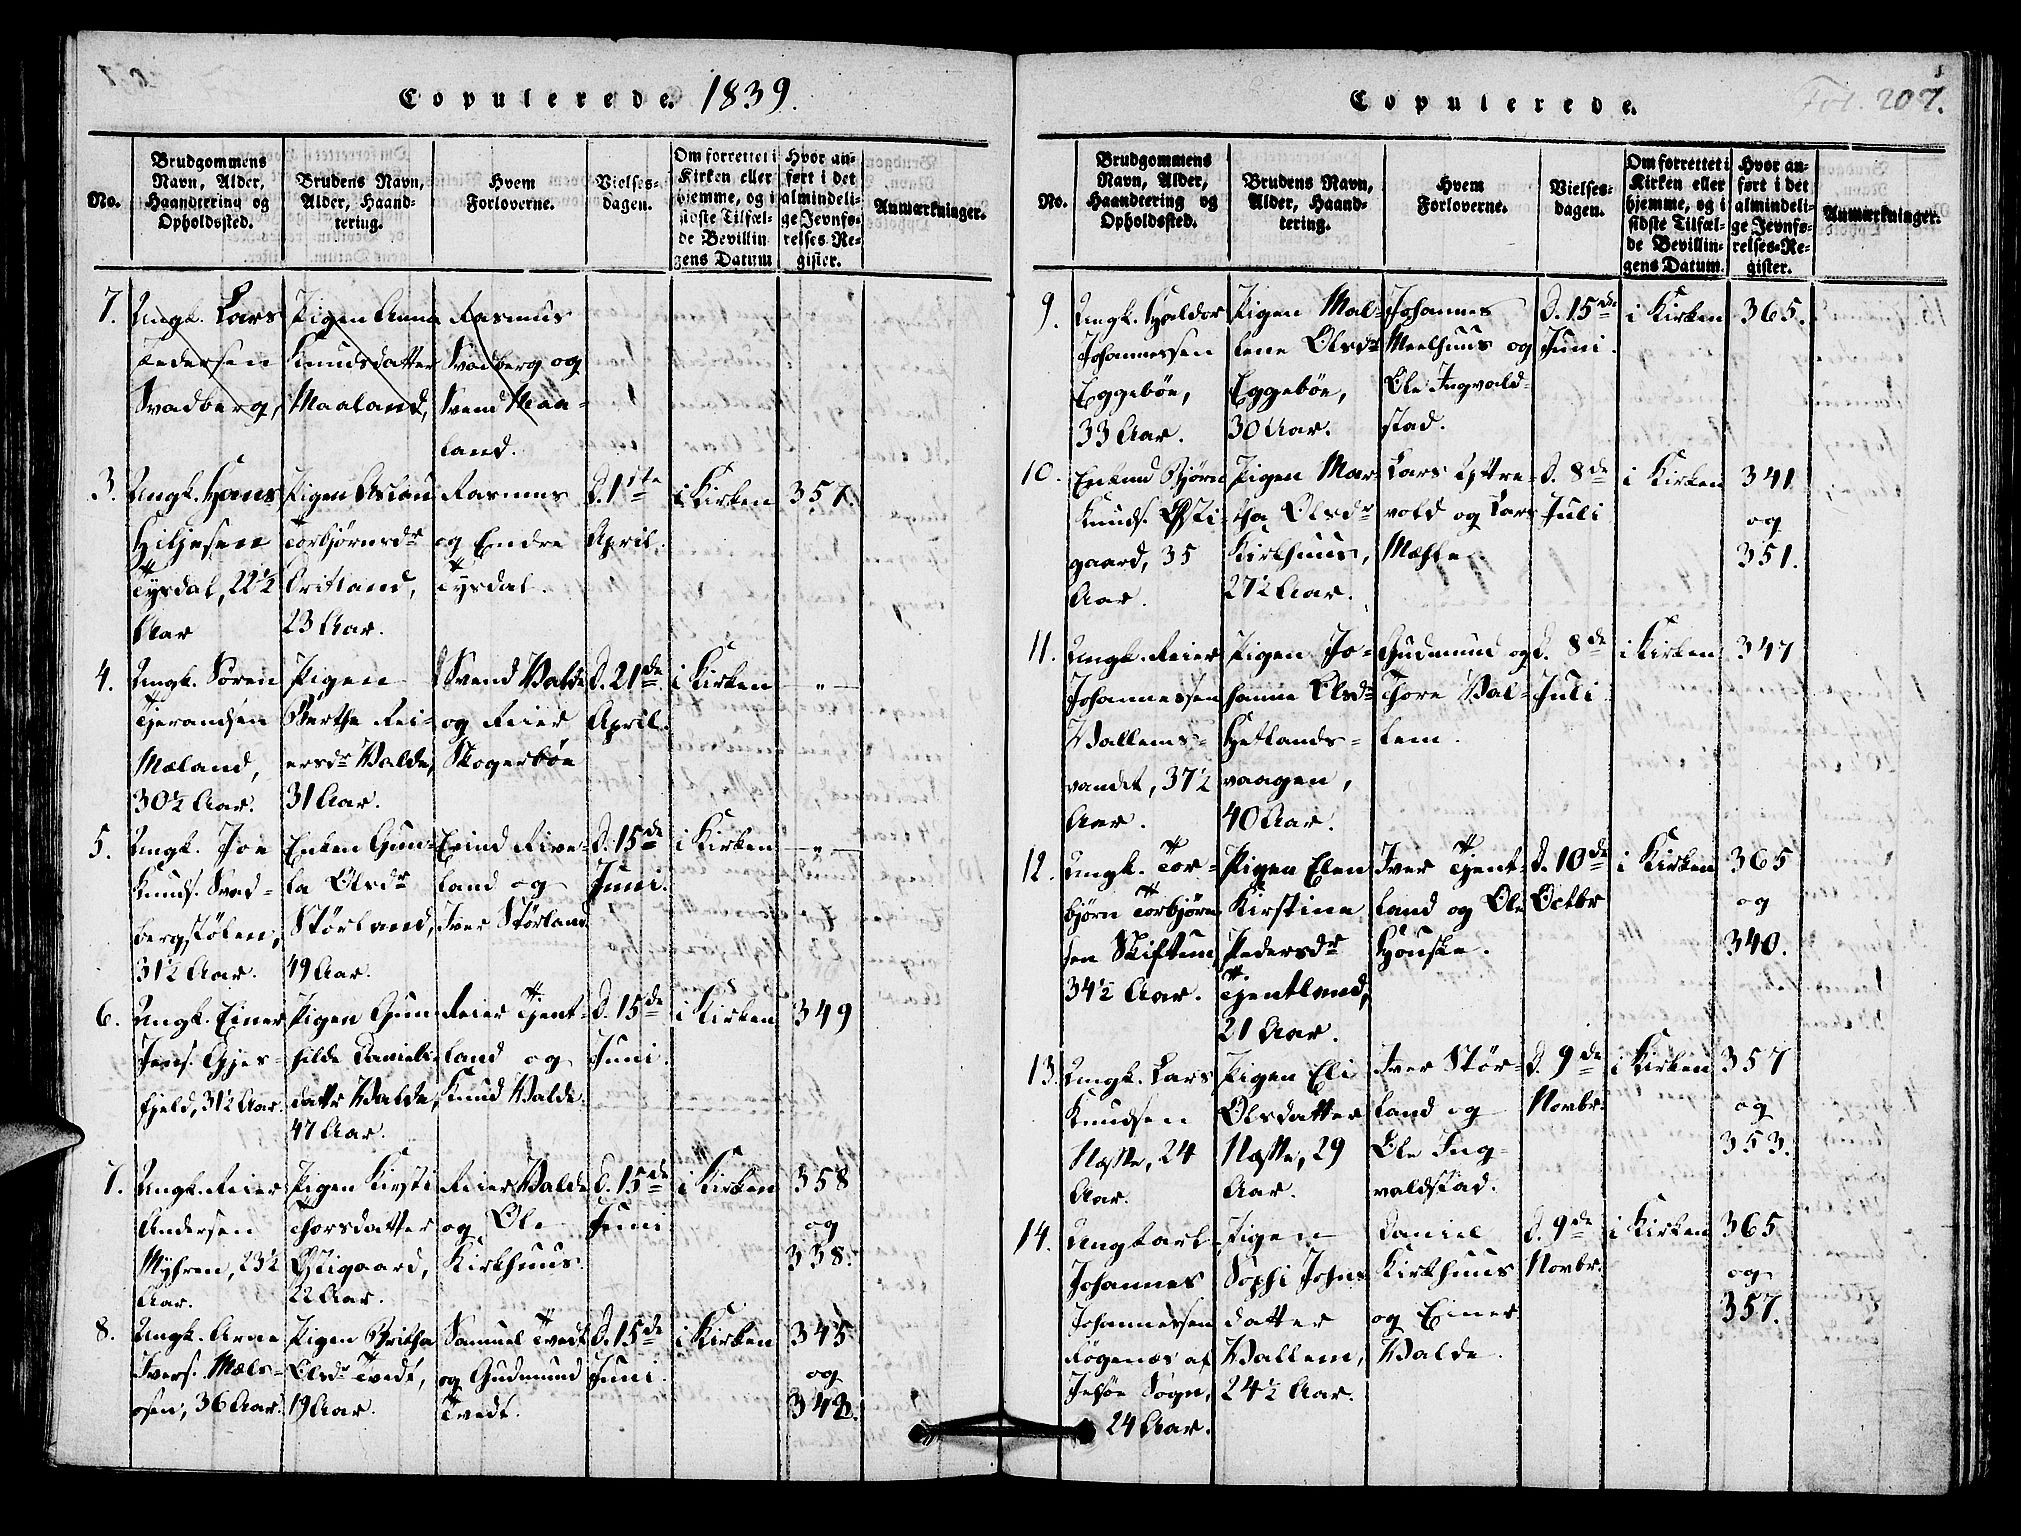 Copulerede. 1839.
No.
Brudgommens
Navn, Alder,
Haandtering og
Opholdssted.
Brudens Navn,
Alder, Haand-
tering.
Hvem
Forloverne.
Vielses-
dagen.
Om forrettet i
Kirken eller
hjemme, og i
sidste Tilfæl-
de Bevillin
gens Datum
Hvor an-
ført i det
almindeli-
ge Jevnfø-
relses-Re-
gister.
Anmærkninger.
7.
Ungk. Lars
Pedersen
Svadberg,
Pigen Anna
Knudsdatter
Maaland,
Rasmus
Svadberg og
Svend Maa-
land.
3.
Ungk. Hans
Tysdal, 22½
Aar
Pigen
Torbjørnsdr
Aritland,
23 Aar.
Rasmus
og Endre
Tysdal.
d. 1ste
April.
i Kirken
357.
4.
Ungk. Sören
Tjerandsen
Mæland,
30½ Aar.
Pigen
Berthe Rei-
ersdr Valde,
31 Aar.
Svend Valde
og Reier
Skogerböe
d. 21de
April.
i Kirken
— " —
5.
Ungk. Joe
Knuds. Svad-
bergstölen,
31½ Aar.
Enken Gun-
la Olsdr
Störland,
49 Aar.
Eivind Rive-
land og
Iver Störland
d. 15de
Juni.
i Kirken
— " —
6.
Ungk. Einer
Jens. Gjes-
fjeld, 31½ Aar.
Pigen Gun-
hilde Daniels-
datr Valde,
47 Aar.
Reier Tjent-
land og
Knud Valde.
d. 15de
Juni.
i Kirken
349
7.
Ungk. Reier
Andersen
Myhren, 23½
Aar.
Pigen Kirsti
Thorsdatter
Östigaard,
22 Aar.
Reier Valde
og Ole
Kirkhuus.
d. 15de
Juni
i Kirken
358
og
338.
8.
Ungk. Arne
Ivers. Mæls-
osen, 36 Aar.
Pigen Britha
Olsdr Tvedt,
19 Aar.
Samuel Tvedt
og Gudmund
Tvedt.
d. 15de
Juni.
i Kirken
345
og
342.
Copulerede.
Fol. 207.
No.
Brudgommens
Navn, Alder,
Haandtering og
Opholdssted.
Brudens Navn,
Alder, Haand-
tering.
Hvem
Forloverne.
Vielses-
dagen.
Om forrettet i
Kirken eller
hjemme, og i
sidste Tilfæl-
de Bevillin-
gens Datum.
Hvor an-
ført i det
almindeli-
ge Jevnfø-
relses-Re-
gister.
Anmærkninger.
9.
Ungk. Haldor
Johannessen
Eggeböe,
33 Aar.
Pigen Mal-
lene Olsdr
Eggeböe,
30 Aar.
Johannes
Meelhuus og
Ole Ingvald-
stad.
d. 15de
Juni.
i Kirken
365.
10.
Enkmd Björn
Knuds. Østi-
gaard, 35
Aar.
Pigen Mar-
tha Olsdr
Kirkhuus,
27½ Aar.
Lars Yttre-
vold og Lars
Mæhle
d. 8de
Juli
i Kirken
341
og
351.
11.
Ungk. Reier
Johannessen
Vallems-
vandet, 37½
Aar.
Pigen Jo-
hanne Olsdr
Hetlands-
vaagen,
40 Aar.
Gudmund og
Thore Val-
lem.
d. 8de
Juli
i Kirken
347
12.
Ungk. Tor-
björn Torbjörn-
sen Skiftun,
34½ Aar.
Pigen Elen
Kirstine
Pedersdr
Tjentland,
21 Aar.
Iver Tjent-
land og Ole
Höuske.
d. 10de
Octbr
i Kirken
365
og
340.
13.
Ungk. Lars
Knudsen
Næsse, 24
Aar.
Pigen Eli
Olsdatter
Næsse, 29
Aar.
Iver Stör-
land og
Ole Ing-
valdstad.
d. 9de
Novbr.
i Kirken
357
og
353.
14.
Ungkarl
Johannes
Johannessen
Fögenæs af
Jelsöe Sogn,
24 Aar.
Pigen
Sophi Johns
datter
Vallem,
24½ Aar.
Daniel
Kirkhuus
og Einer
Valde.
d. 9de
Novbr.
i Kirken
365
og
357.